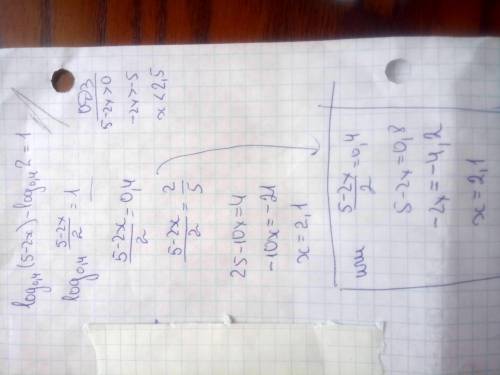 log₀,₄(5-2x)-log₀,₄2=1
log₀,₄ (5-2x)/2 = 1
(5-2x)/2 = 0,4
(5-2x)/2 = 2/5
25-10x=4
-10x=-21
x=2,1
ОДЗ
5-2x>0
-2x>-5
x<2,5
или (5-2x)/2 = 0,4
5-2x=0,8
-2x=-4,2
x=2,1